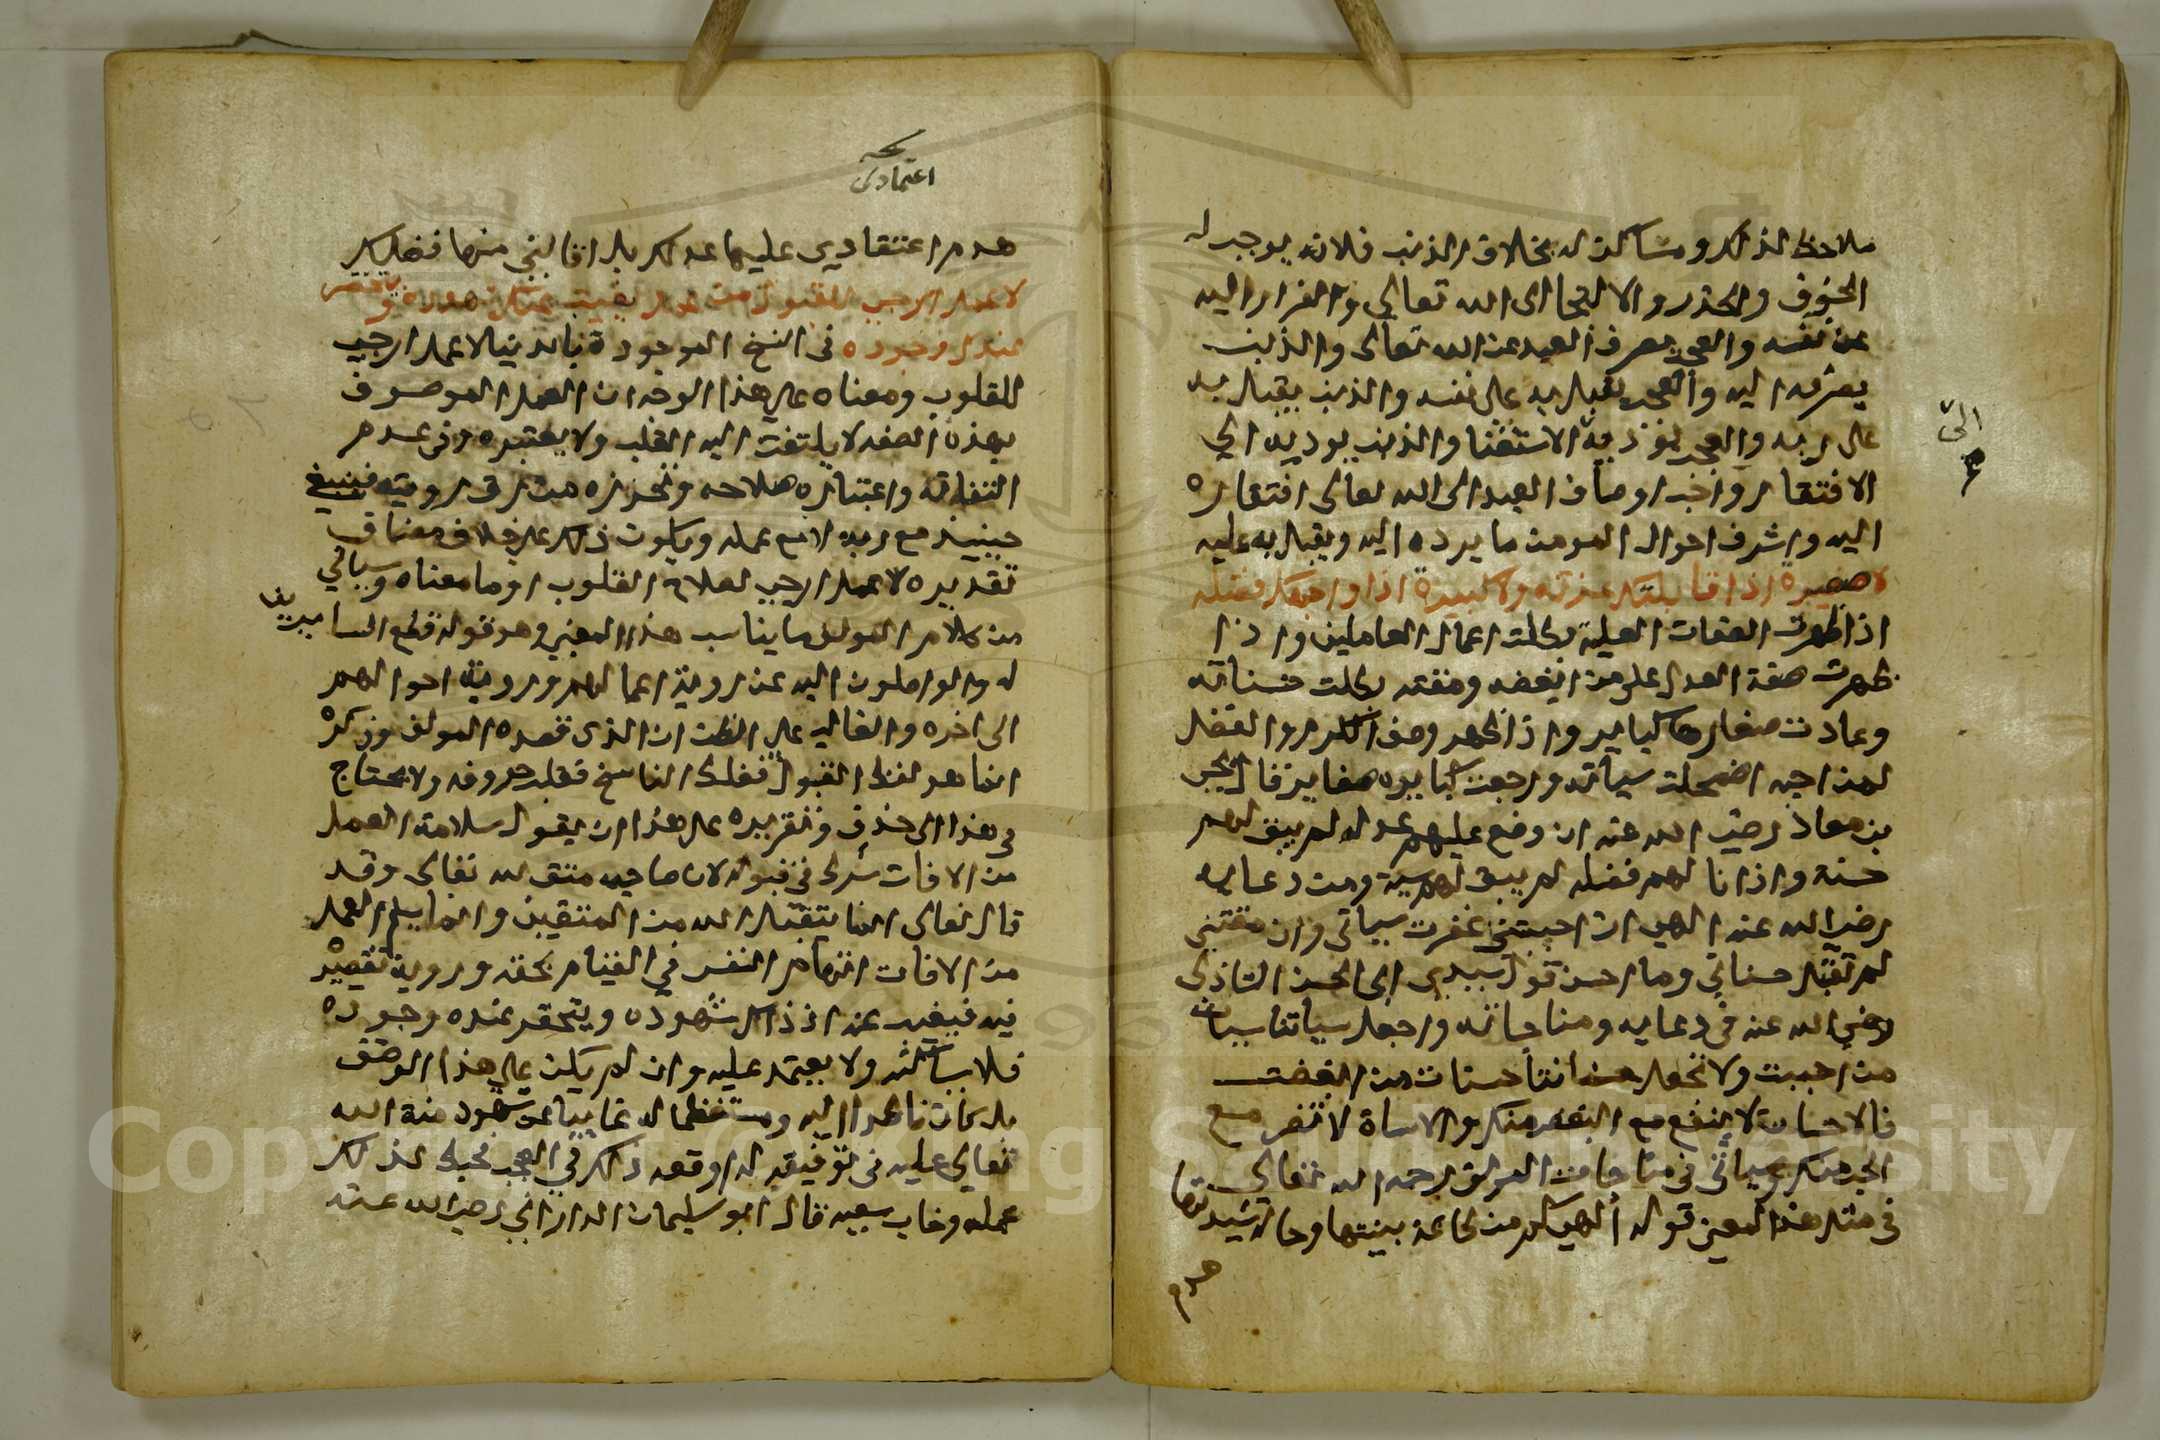 ملاحظ لذلك ومساكن له بخلاف الذنب فلانه يوجب له
الخوف والحذر والالتجا الى الله تعالي والفرار اليه
من نفسه والعجب يصرف العبد عن الله تعالى والذنب
يصرفه اليه والعجب يقبل به على نفسه والذنب يقبل به
على ربه والعجب يوديه الاستغنا والذنب يوديه الي
الى
الافتقار واحب اوصاف العبد الى الله تعالى افتقاره
اليه واشرف احوال المومن ما يرده اليه ويقبل به عليه
لا صغيرة اذا قابلك عدله ولا كبيرة اذا واجهك فضله
اذا ظهرت الصفات العلية بطلت اعمال العاملين واذا
ظهرت صفة العدل على من ابغضه ومقته بطلت حسناته
وعادت صغايره كباير واذا ظهر وصف الكرم والفضل
لمن احبه اضمحلت سياته ورجعت كبايره صغاير قال يحيى
بن معاذ رضي الله عنه ان وضع عليهم عدله لم يبق لهم
حسنة واذا نالهم فضله لم يبق لهم سية ومن دعايه
رضي الله عنه الهي ان احببتني غفرت سياتي وان مقتني
لم تقبل حسناتي وما احسن قول سيدي ابي الحسن الشاذلى
رضي الله عنه في دعايه ومناجاته واجعل سياتنا سيات
من احببت ولا تجعل حسناتنا حسنات من ابغضت
فالاحسان لا ينفع مع البغض منك والاساة لا تضر مع
الحب منك وسياتي في مناجات المولف رحمه الله تعالى
في مثل هذا المعنى قوله الهي كم من طاعة بنيتها وحالة شيدتها
هدم
نسخه
اعتمادى
هدم اعتقادي عليها عدلك بل اقالني منها فضلك
لا عمل ارجى للقبول من عمل يغيب عنك شهوده ويحتقر
عندك وجوده في النسخ الموجودة بايدينا لا عمل ارجى
للقلوب ومعناه على هذا الوجه ان العمل الموصوف
بهذه الصفه لا يلتفت اليه القلب ولا يعتبره وفي عدم
التفاته واعتباره صلاحه وتحرزه من رق رويته فيبقى
حينيذ مع ربه لا مع عمله ويكون ذلك على خلاف مضاف
تقديره لا عمل ارجى لصلاح القلوب او ما معناه وسياتي
من كلام المولف ما يناسب هذا المعنى وهو قوله قطع السايرين
له والواصلين اليه عن روية اعمالهم وروية احوالهم
الى اخره والغالب على الظن ان الذى قصده المولف وذكره
انما هو لفظ القبول فغلط الناسخ فقلب حروفه ولا يحتاج
في هذا الى حذف وتقريره على هذا ان يقول سلامة العمل
من الافات شرط في قبوله لان صاحبه متق لله تعالى وقد
قال تعالى انما يتقبل الله من المتقين وانما يسلم العمل
من الافات اتهام النفس في القيام بحقه وروية تقصيره
فيه فيغيب عنه اذ ذاك شهوده ويحتقر عنده وجوده
فلا يساكنه ولا يعتمد عليه وان لم يكن على هذا الوصف
بل كان ناظرا اليه ومستعظما له غايبا عن شهود منة الله
تعالى عليه في توفيقه له اوقعه ذلك في العجب فحبط لذلك
عمله وخاب سعيه قال ابو سليمان الداراني رضي الله عنه